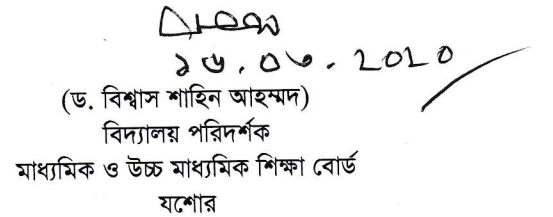 ১৬.০৬.2020
(ড. বিশ্বাস শাহিন আহম্মদ)
বিদ্যালয় পরিদর্শক
মাধ্যমিক ও উচ্চ মাধ্যমিক শিক্ষা বোর্ড
যশোর